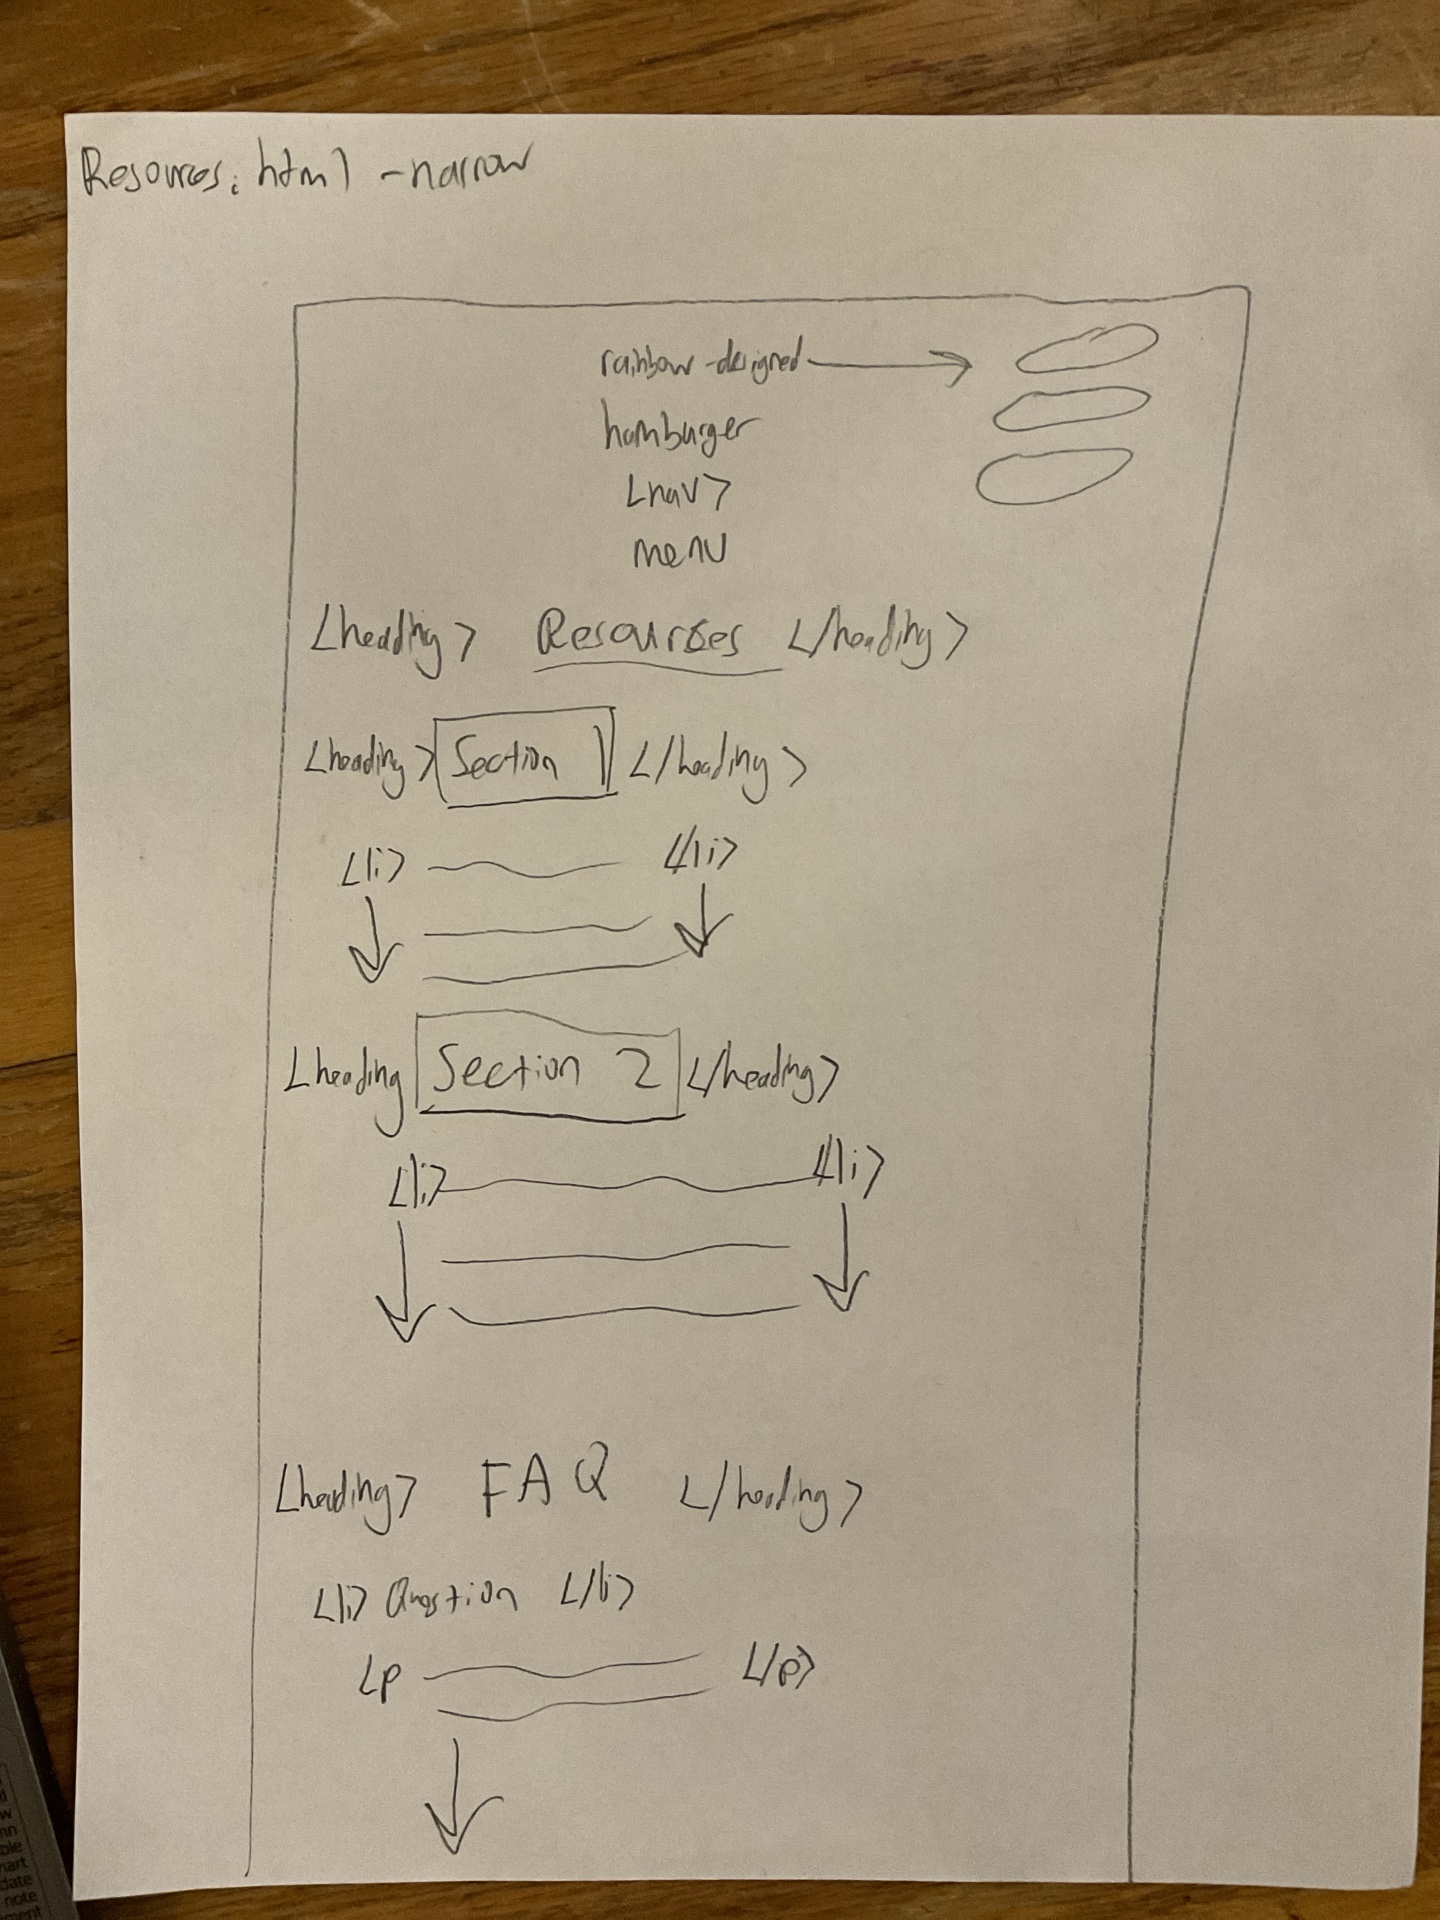 Resources.html - narrow
rainbow-designed
hamburger
<nav>
menu
<heading> Resources </heading>
<heading> Section 1 </heading>
<li> </li>
<heading Section 2 </heading>
<li> </li>
<heading> FAQ </heading>
<li> Question </li>
<p </p>
ble
date
note